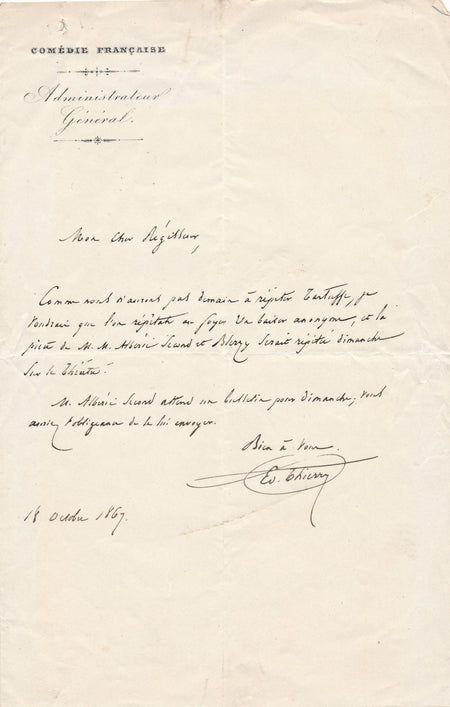 COMÉDIE FRANÇAISE
Administrateur
Général.
Mon cher Régisseur,
Comme nous n'aurons pas demain à répéter Tartuffe, je
voudrais que l'on répétât au foyer Un baiser anonyme, et la
pièce de M. M. Albéric Second et Blerzy serait répétée dimanche
sur le théâtre.
M. Albéric Second attend un bulletin pour dimanche; vous
auriez l'obligeance de le lui envoyer.
Bien à vous.
Ed. Thierry
18 Octobre 1867.